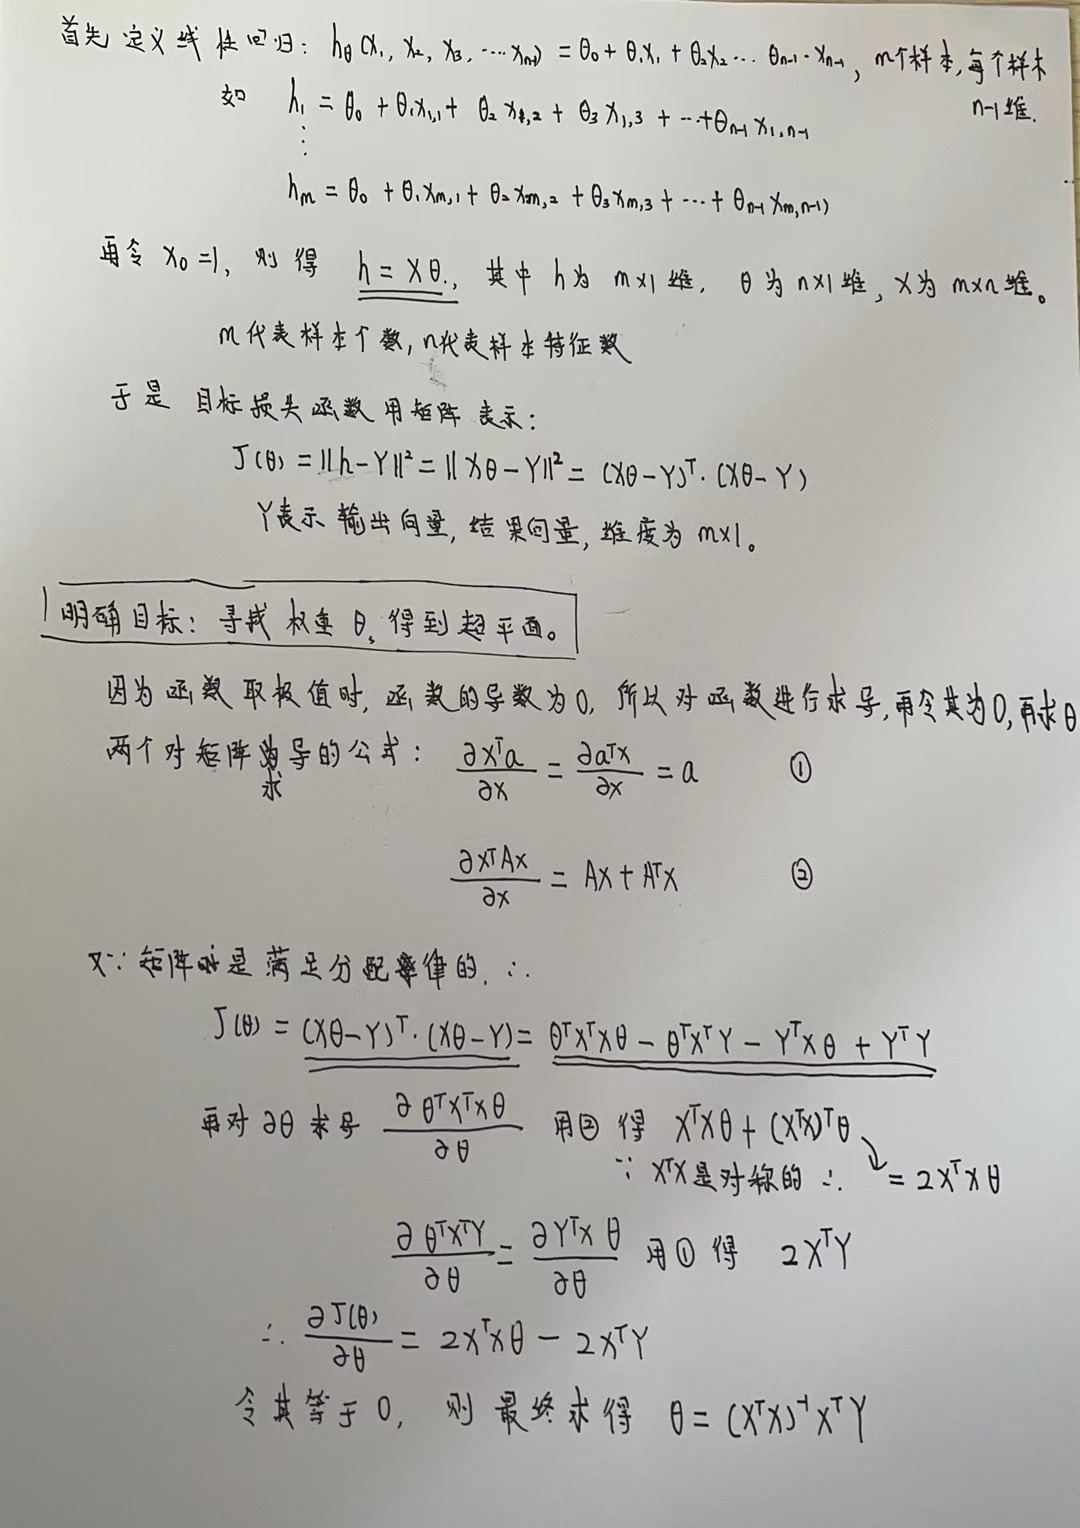 首先定义线性回归: hθ(x₁, x₂, x₃, ····xₙ₋₁) = θ₀ + θ₁x₁ + θ₂x₂ ··· θₙ₋₁·xₙ₋₁, m个样本, 每个样本
n-1维.
如 h₁ = θ₀ + θ₁x₁,₁ + θ₂x₁,₂ + θ₃x₁,₃ + ···+θₙ₋₁x₁,ₙ₋₁
⋮
hₘ = θ₀ + θ₁xₘ,₁ + θ₂xₘ,₂ + θ₃xₘ,₃ + ··· + θₙ₋₁xₘ,ₙ₋₁)
再令 x₀=1, 则得 h = Xθ., 其中 h为 m×1维, θ为n×1维, X为 m×n维。
m代表样本个数, n代表样本特征数
于是 目标损失函数用矩阵表示:
J(θ) = ||h-Y||² = ||Xθ-Y||² = (Xθ-Y)ᵀ·(Xθ-Y)
Y表示输出向量, 结果向量, 维度为 m×1。
明确目标: 寻找权重θ, 得到超平面。
因为函数取极值时, 函数的导数为0, 所以对函数进行求导, 再令其为0, 再求θ
两个对矩阵求导的公式: ∂xᵀa/∂x = ∂aᵀx/∂x = a ①
∂xᵀAx/∂x = Ax + Aᵀx ②
又∵矩阵是满足分配律的, ∴
J(θ) = (Xθ-Y)ᵀ·(Xθ-Y) = θᵀXᵀXθ - θᵀXᵀY - YᵀXθ + YᵀY
再对∂θ求导 ∂θᵀXᵀXθ/∂θ 用②得 XᵀXθ + (XᵀX)ᵀθ
∵ XᵀX是对称的 ∴ = 2XᵀXθ
∂θᵀXᵀY/∂θ = ∂YᵀXθ/∂θ 用①得 2XᵀY
∴ ∂J(θ)/∂θ = 2XᵀXθ - 2XᵀY
令其等于0, 则最终求得 θ = (XᵀX)⁻¹XᵀY